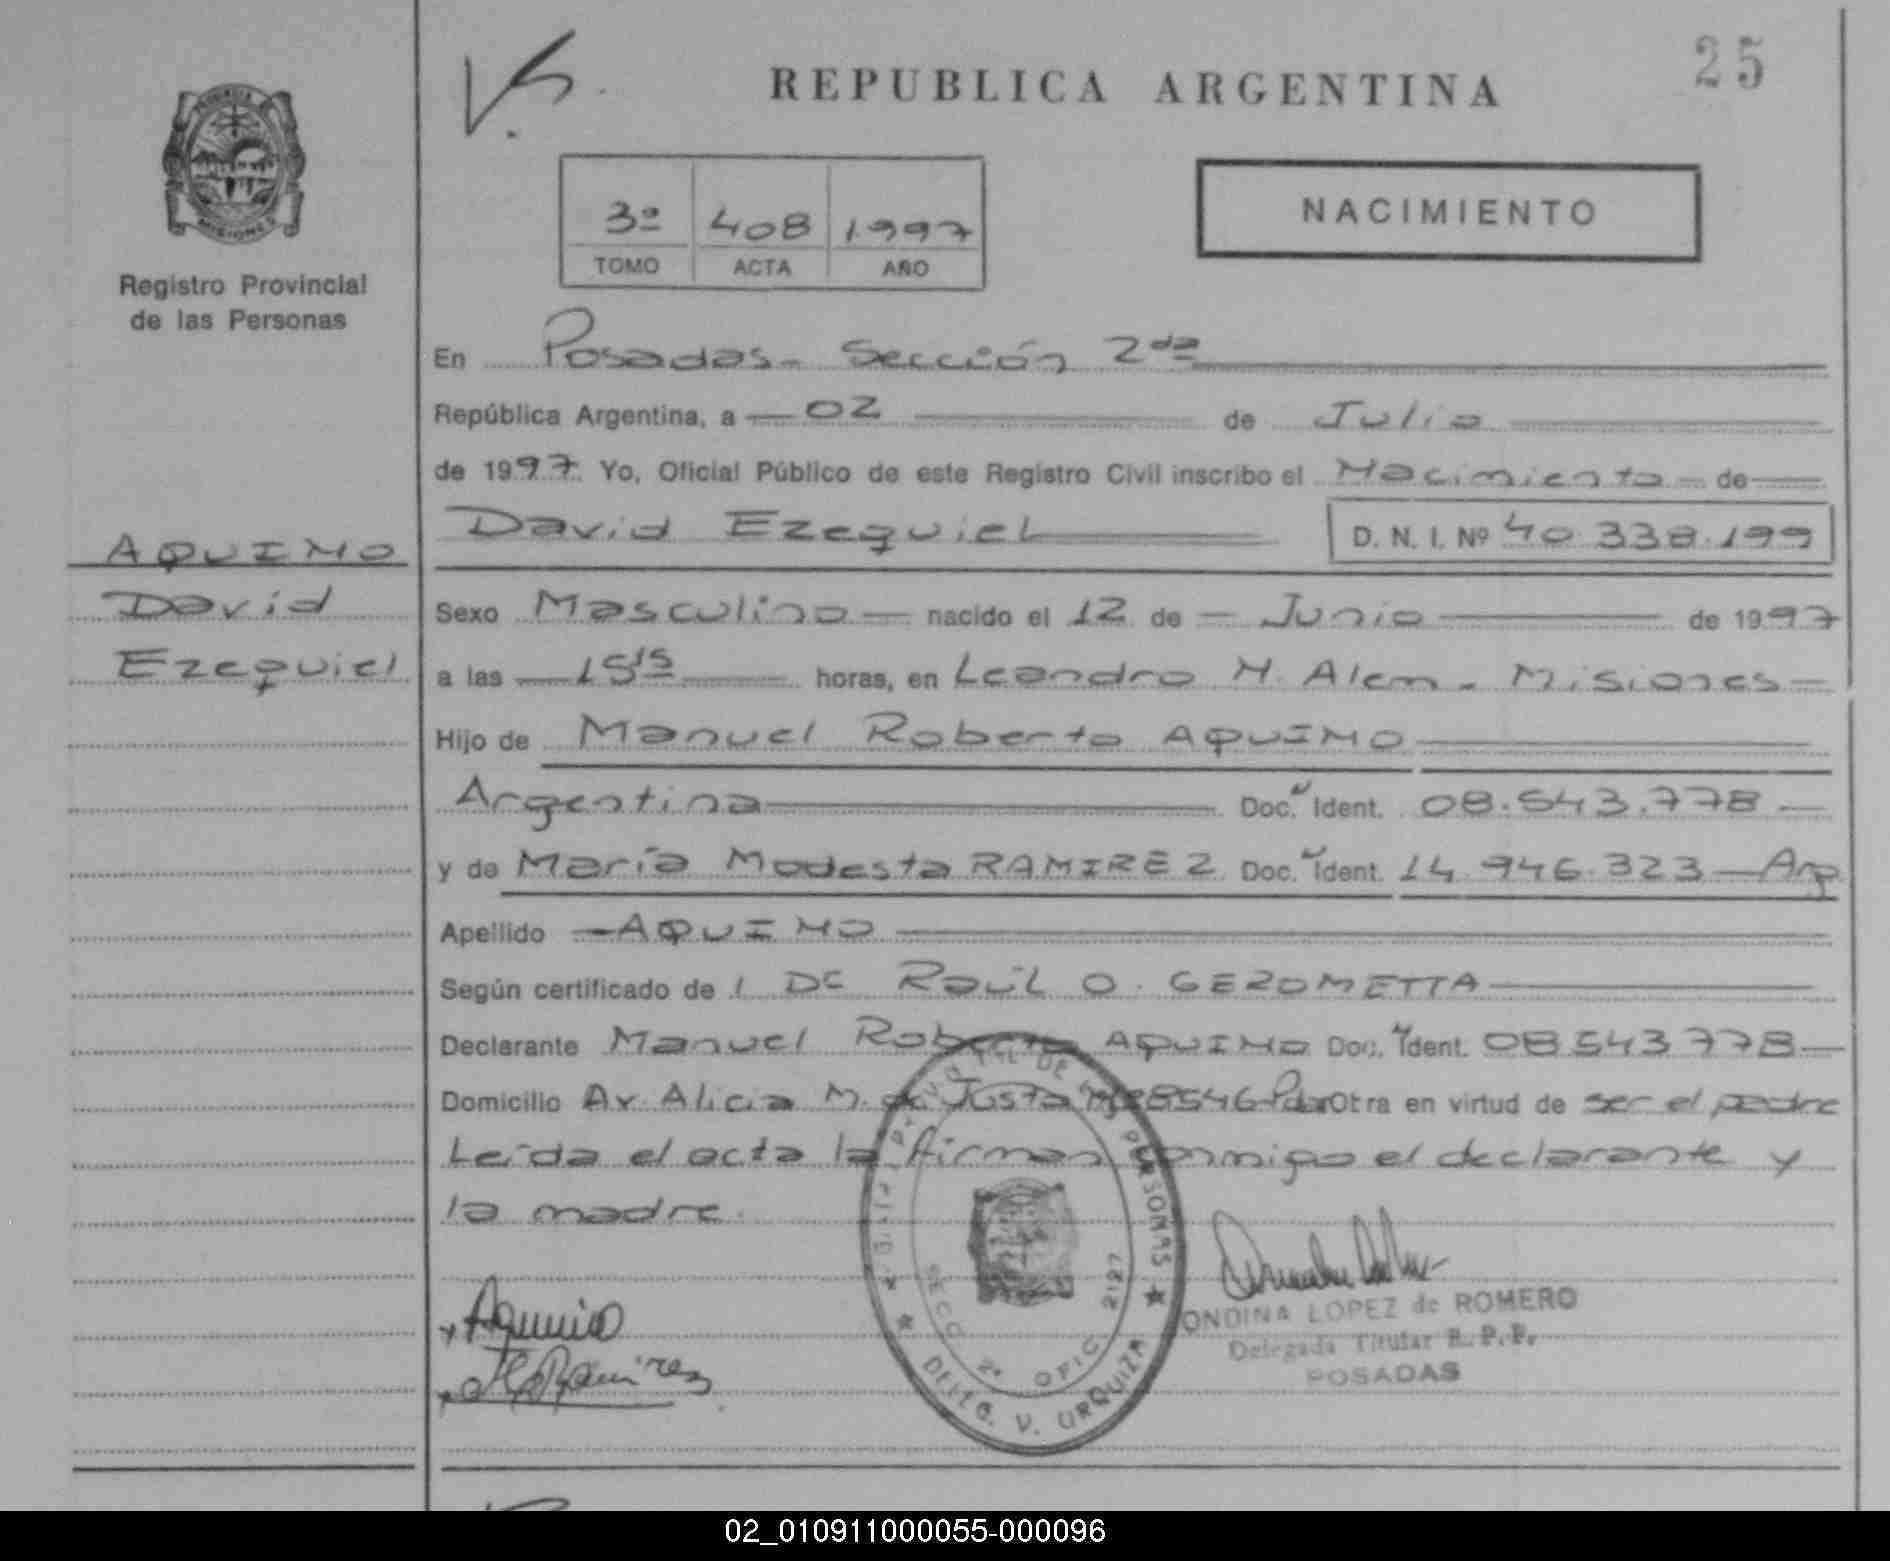 25
REPUBLICA ARGENTINA
NACIMIENTO
3º 408 1997
TOMO ACTA AÑO
MISIONES
Registro Provincial
de las Personas
En Posadas - Sección 2da
República Argentina, a 02 de Julio
de 1997. Yo, Oficial Público de este Registro Civil inscribo el Nacimiento de
David Ezequiel D. N. I. Nº 40.338.199
AQUINO
David
Ezequiel
Sexo Masculino nacido el 12 de Junio de 1997
a las 15 15 horas, en Leandro N. Alem - Misiones
Hijo de Manuel Roberto AQUINO
Argentina Doc. Ident. 08.543.778
y de María Modesta RAMIREZ Doc. Ident. 14.946.323 - Arg
Apellido AQUINO
Según certificado de l Dr Raúl O. GEROMETTA
Declarante Manuel Roberto AQUINO Doc. Ident. 08.543.778
Domicilio Av. Alicia M. de Justo Nº 8546 Otra en virtud de ser el padre
Leída el acta la firman conmigo el declarante y
la madre.
DE LAS PERSONAS
SECC. 2ª OFIC. 2127
DELEG. V. URQUIZA
Aquino
Ramirez
ONDINA LOPEZ de ROMERO
Delegada Titular R.P.P.
POSADAS
02_010911000055-000096